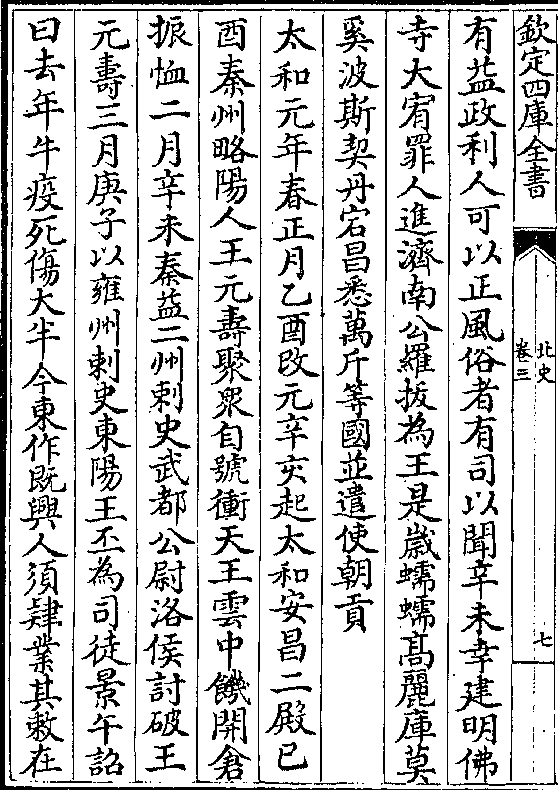 欽定四庫全書
北史
卷三
七
有益政利人可以正風俗者有司以聞辛未幸建明佛
寺大宥罪人進濟南公羅拔為王是歲蠕蠕髙麗庫莫
奚波斯契丹宕昌悉萬斤等國並遣使朝貢
太和元年春正月乙酉改元辛亥起太和安昌二殿已
酉秦州略陽人王元壽聚衆自號衝天王雲中饑開倉
振恤二月辛未秦益二州刺史武都公尉洛侯討破王
元壽三月庚子以雍州刺史東陽王丕為司徒景午詔
曰去年牛疫死傷大半今東作既興人須肄業其敕在